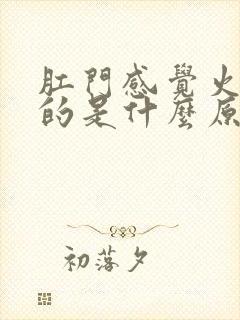 肛門感覺火
的是什麼原
初落夕